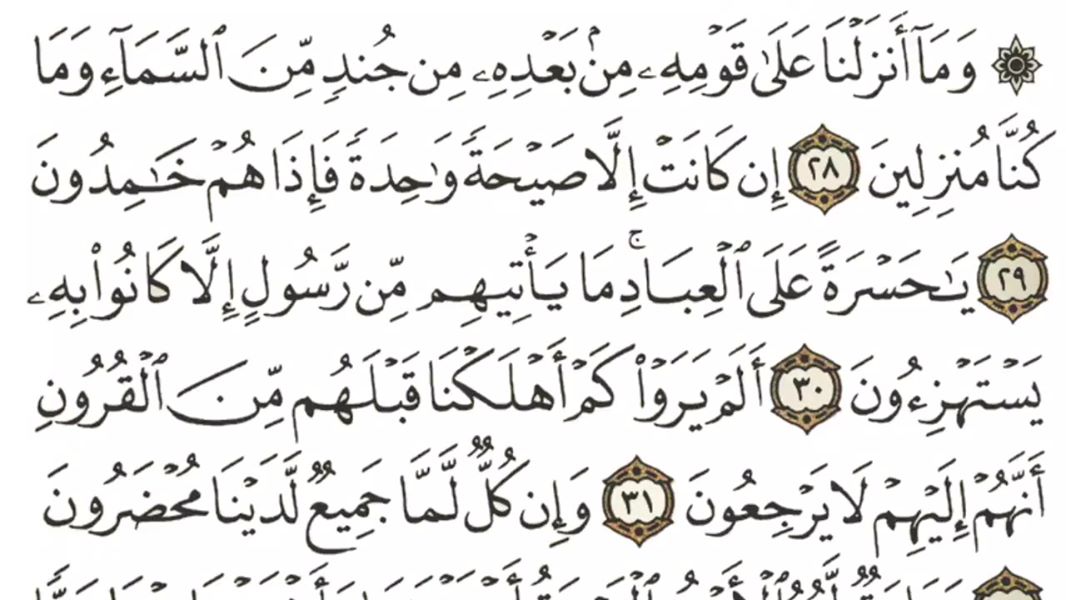 ۞ وَمَآ أَنزَلْنَا عَلَىٰ قَوْمِهِۦ مِنۢ بَعْدِهِۦ مِن جُندٍ مِّنَ ٱلسَّمَآءِ وَمَا
كُنَّا مُنزِلِينَ ٢٨ إِن كَانَتْ إِلَّا صَيْحَةً وَٰحِدَةً فَإِذَا هُمْ خَـٰمِدُونَ
٢٩ يَـٰحَسْرَةً عَلَى ٱلْعِبَادِ ۚ مَا يَأْتِيهِم مِّن رَّسُولٍ إِلَّا كَانُوا۟ بِهِۦ
يَسْتَهْزِءُونَ ٣٠ أَلَمْ يَرَوْا۟ كَمْ أَهْلَكْنَا قَبْلَهُم مِّنَ ٱلْقُرُونِ
أَنَّهُمْ إِلَيْهِمْ لَا يَرْجِعُونَ ٣١ وَإِن كُلٌّ لَّمَّا جَمِيعٌ لَّدَيْنَا مُحْضَرُونَ